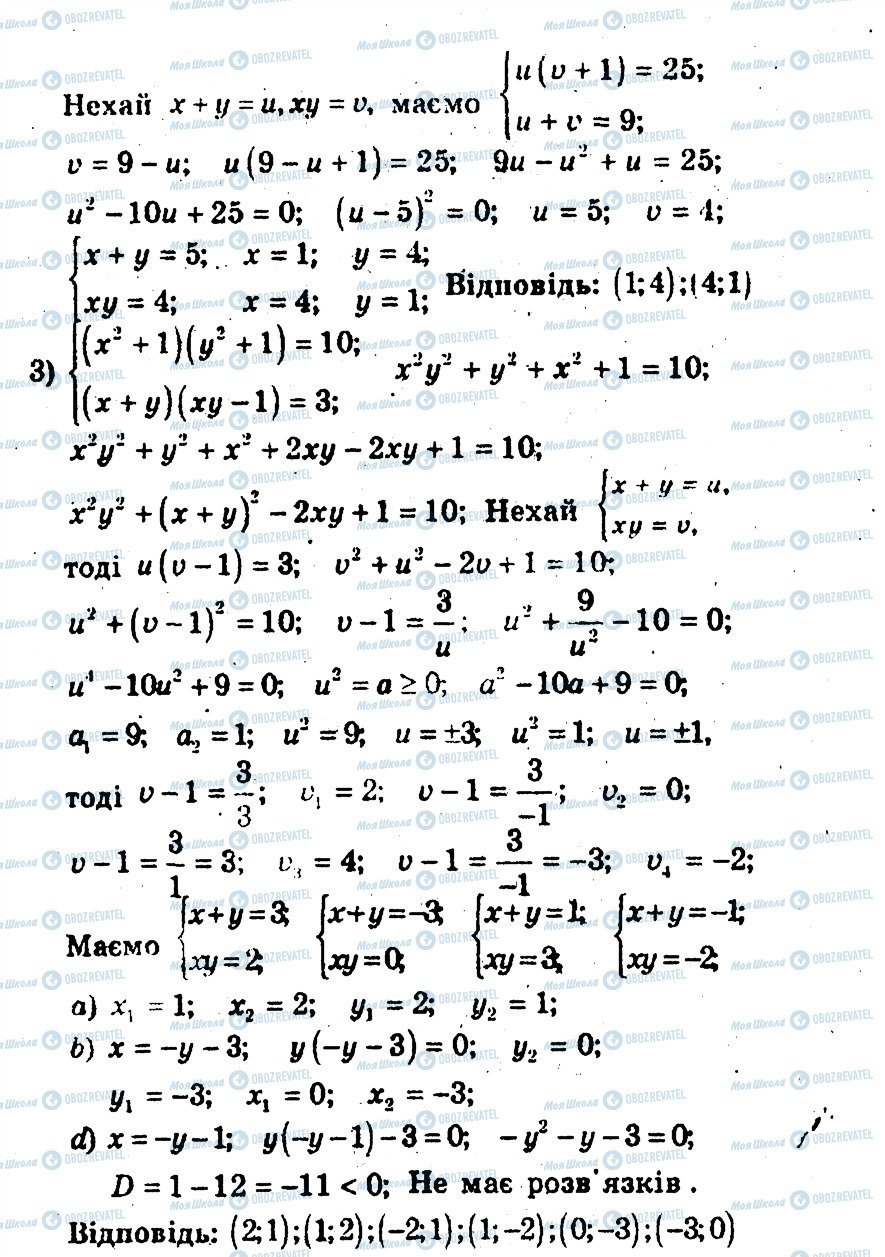 Нехай x + y = u, xy = v, маємо { u(v + 1) = 25; u + v = 9;
v = 9 − u; u(9 − u + 1) = 25; 9u − u² + u = 25;
u² − 10u + 25 = 0; (u − 5)² = 0; u = 5; v = 4;
{ x + y = 5; x = 1; y = 4;
xy = 4; x = 4; y = 1; Відповідь: (1;4);(4;1)
3) { (x² + 1)(y² + 1) = 10; (x + y)(xy − 1) = 3; x²y² + y² + x² + 1 = 10;
x²y² + y² + x² + 2xy − 2xy + 1 = 10;
x²y² + (x + y)² − 2xy + 1 = 10; Нехай { x + y = u, xy = v,
тоді u(v − 1) = 3; v² + u² − 2v + 1 = 10;
u² + (v − 1)² = 10; v − 1 = 3/u; u² + 9/u² − 10 = 0;
u⁴ − 10u² + 9 = 0; u² = a ≥ 0; a² − 10a + 9 = 0;
a₁ = 9; a₂ = 1; u² = 9; u = ±3; u² = 1; u = ±1,
тоді v − 1 = 3/3; v₁ = 2; v − 1 = 3/−1; v₂ = 0;
v − 1 = 3/1 = 3; v₃ = 4; v − 1 = 3/−1 = −3; v₄ = −2;
Маємо { x+y=3; xy=2; { x+y=−3; xy=0; { x+y=1; xy=3; { x+y=−1; xy=−2;
a) x₁ = 1; x₂ = 2; y₁ = 2; y₂ = 1;
b) x = −y − 3; y(−y − 3) = 0; y₂ = 0;
y₁ = −3; x₁ = 0; x₂ = −3;
d) x = −y − 1; y(−y − 1) − 3 = 0; −y² − y − 3 = 0;
D = 1 − 12 = −11 < 0; Не має розв'язків.
Відповідь: (2;1);(1;2);(−2;1);(1;−2);(0;−3);(−3;0)
МояШкола OBOZREVATEL